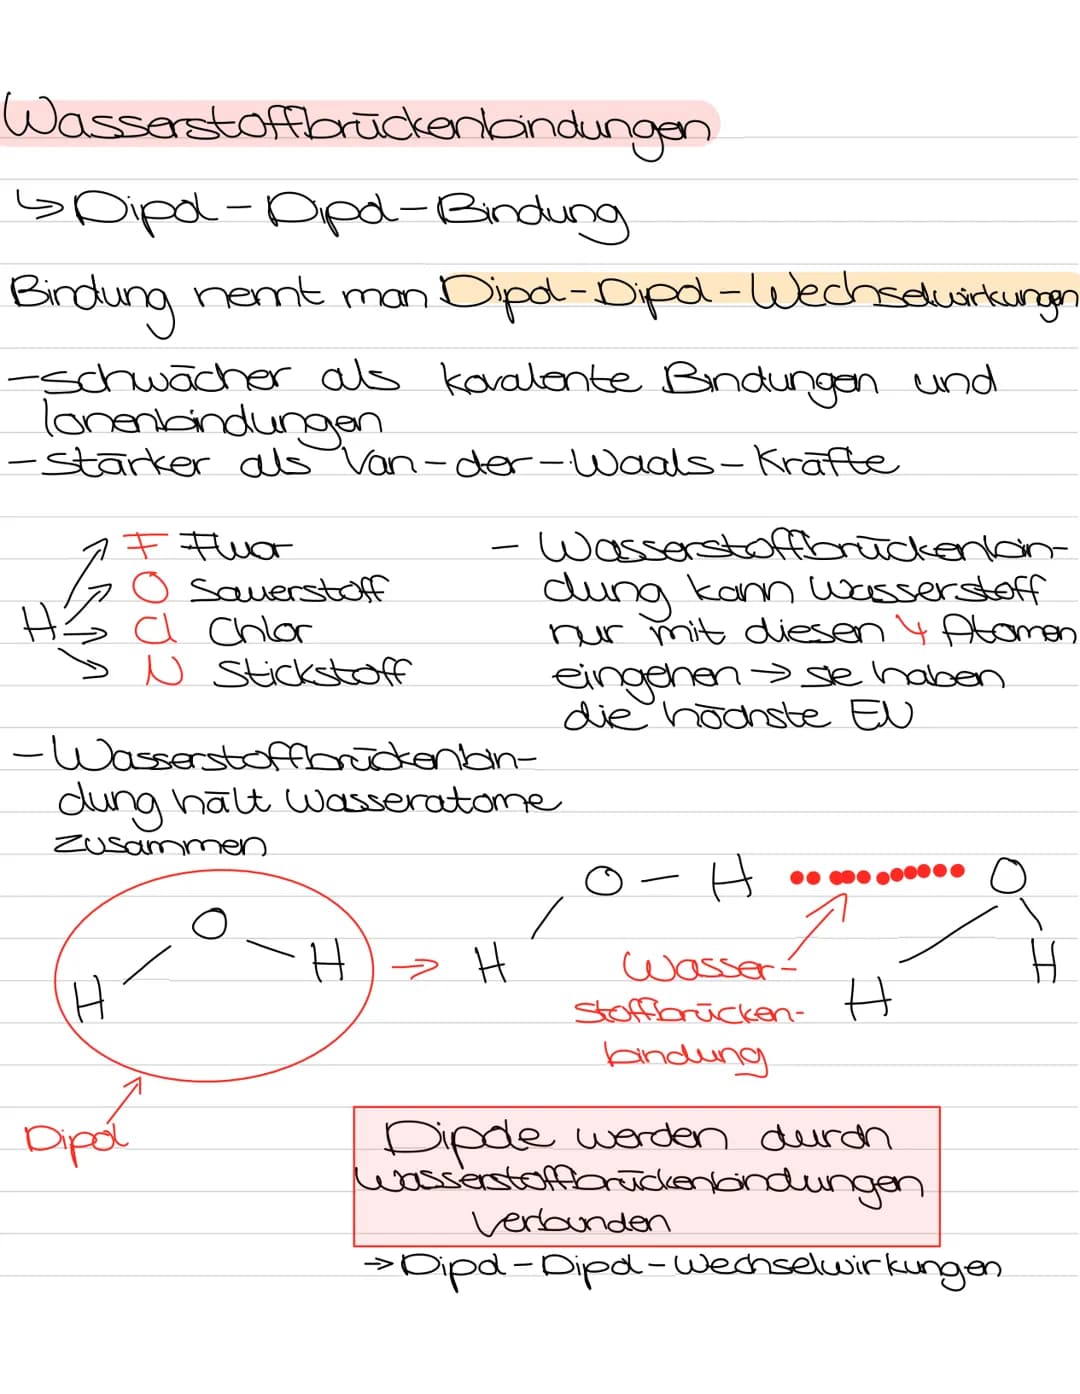 Wasserstoffbrückenbindungen
↳ Dipol-Dipol-Bindung
Bindung nennt man Dipol-Dipol-Wechselwirkungen
-schwächer als kovalente Bindungen und
Ionenbindungen
-stärker als Van-der-Waals-Kräfte
F Fluor
O Sauerstoff
H Cl Chlor
N Stickstoff
- Wasserstoffbrückenbin-
dung kann Wasserstoff
nur mit diesen 4 Atomen
eingehen → sie haben
die höchste EN
-Wasserstoffbrückenbin-
dung hält Wasseratome
zusammen
O
H
H
→
O - H
O
H
H
H
Wasser-
stoffbrücken-
bindung
Dipol
Dipole werden durch
Wasserstoffbrückenbindungen
verbunden
→ Dipol-Dipol-Wechselwirkungen